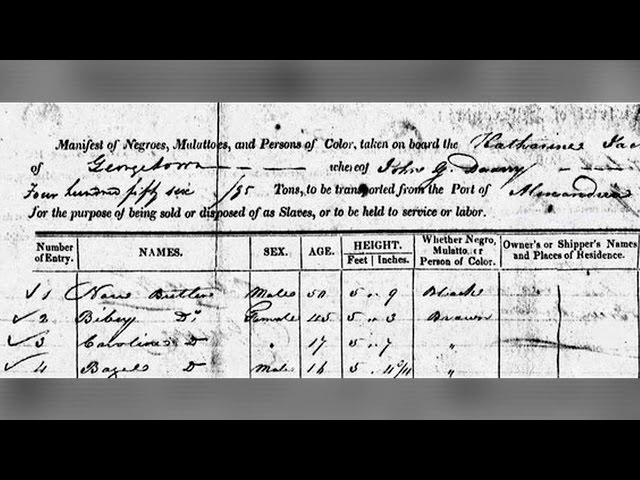 Manifest of Negroes, Mulattoes, and Persons of Color, taken on board the Katharine Jac
of Georgetown whereof John G. Dawry
Four hundred fifty six /95 Tons, to be transported from the Port of Alexandria
for the purpose of being sold or disposed of as Slaves, or to be held to service or labor.
Number of Entry. NAMES. SEX. AGE. HEIGHT. Feet Inches. Whether Negro, Mulatto, or Person of Color. Owner's or Shipper's Names and Places of Residence.
1 Butler Male 50 5 " 9 Black
2 Bibey Do Female 45 5 " 3 Brown
3 Caroline D " 17 5 " 7 "
4 D Male 16 5 "